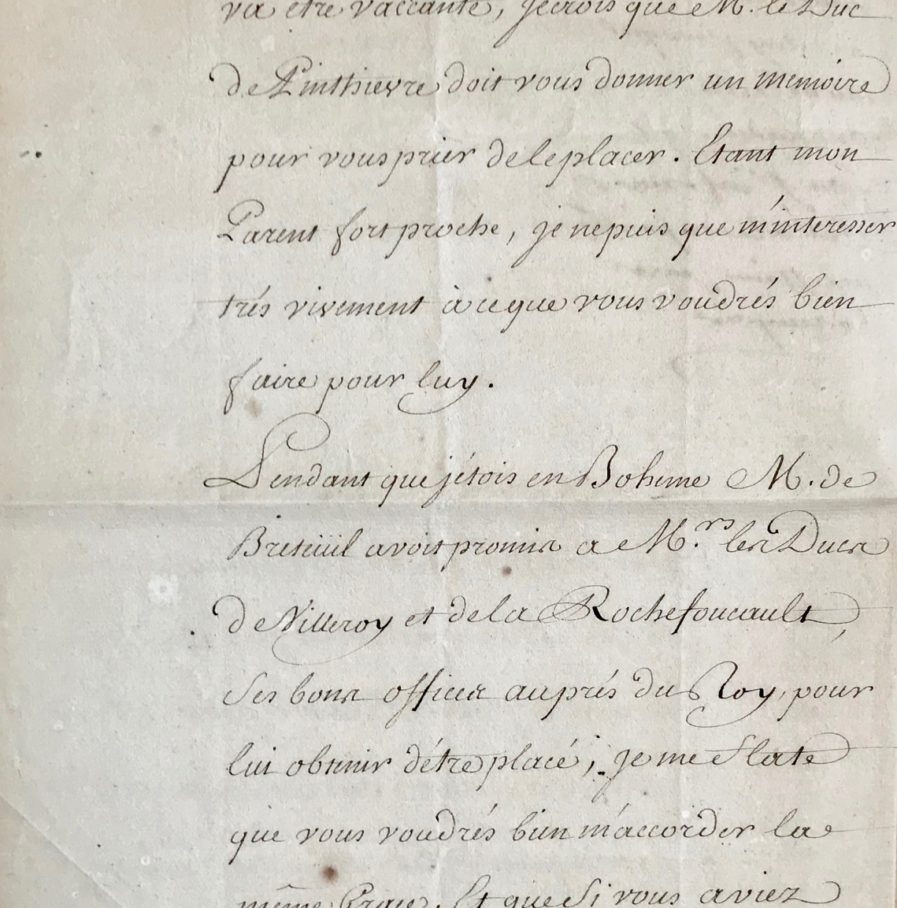 va etre vaccante, je crois que M. le Duc
de Pinthievre doit vous donner un memoire
pour vous prier de le placer. Etant mon
Parent fort proche, je ne puis que m'interesser
trés vivement à ce que vous voudrés bien
faire pour luy.
Pendant que j'étois en Boheme M. de
Breteüil avoit promis a M.rs les Ducs
de Villeroy et de la Rochefoucault,
Ses bons offices auprés du Roy, pour
lui obtenir d'étre placé; je me flate
que vous voudrés bien m'accorder la
même Grace. Et que Si vous aviez